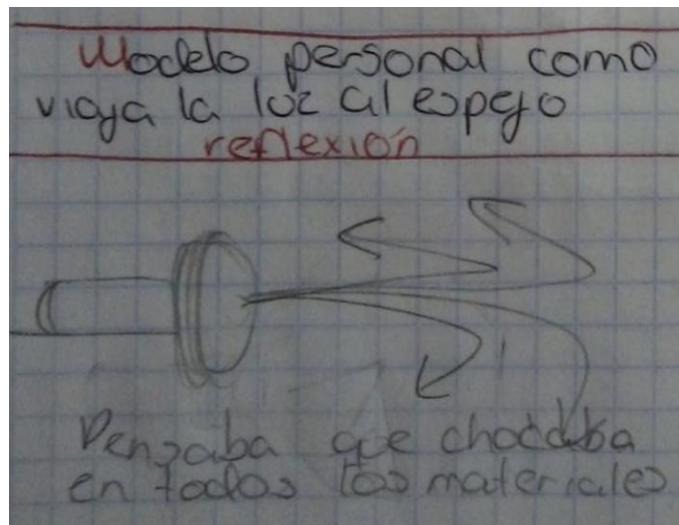 Modelo personal como
viaja la luz al espejo
reflexión
Pensaba que chocaba
en todos los materiales